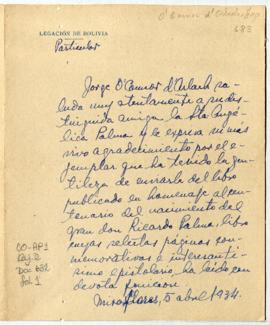 O'Connor d'
683
LEGACIÓN DE BOLIVIA
Particular
Jorge O'Connor d'Arlach sa-
luda muy atentamente a su dis-
tinguida amiga la Sta Angé-
lica Palma y le expresa su más
vivo agradecimiento por el e-
jemplar que ha tenido la gen-
tileza de enviarle del libro
publicado en homenaje al cen-
tenario del nacimiento del
gran don Ricardo Palma, libro
cuyas selectas páginas con-
memorativas e interesantí-
simo epistolario, ha leído con
devota
Miraflores, 5 abril 1934.
CO-AP1
Caj.2
Doc 682
fol.1